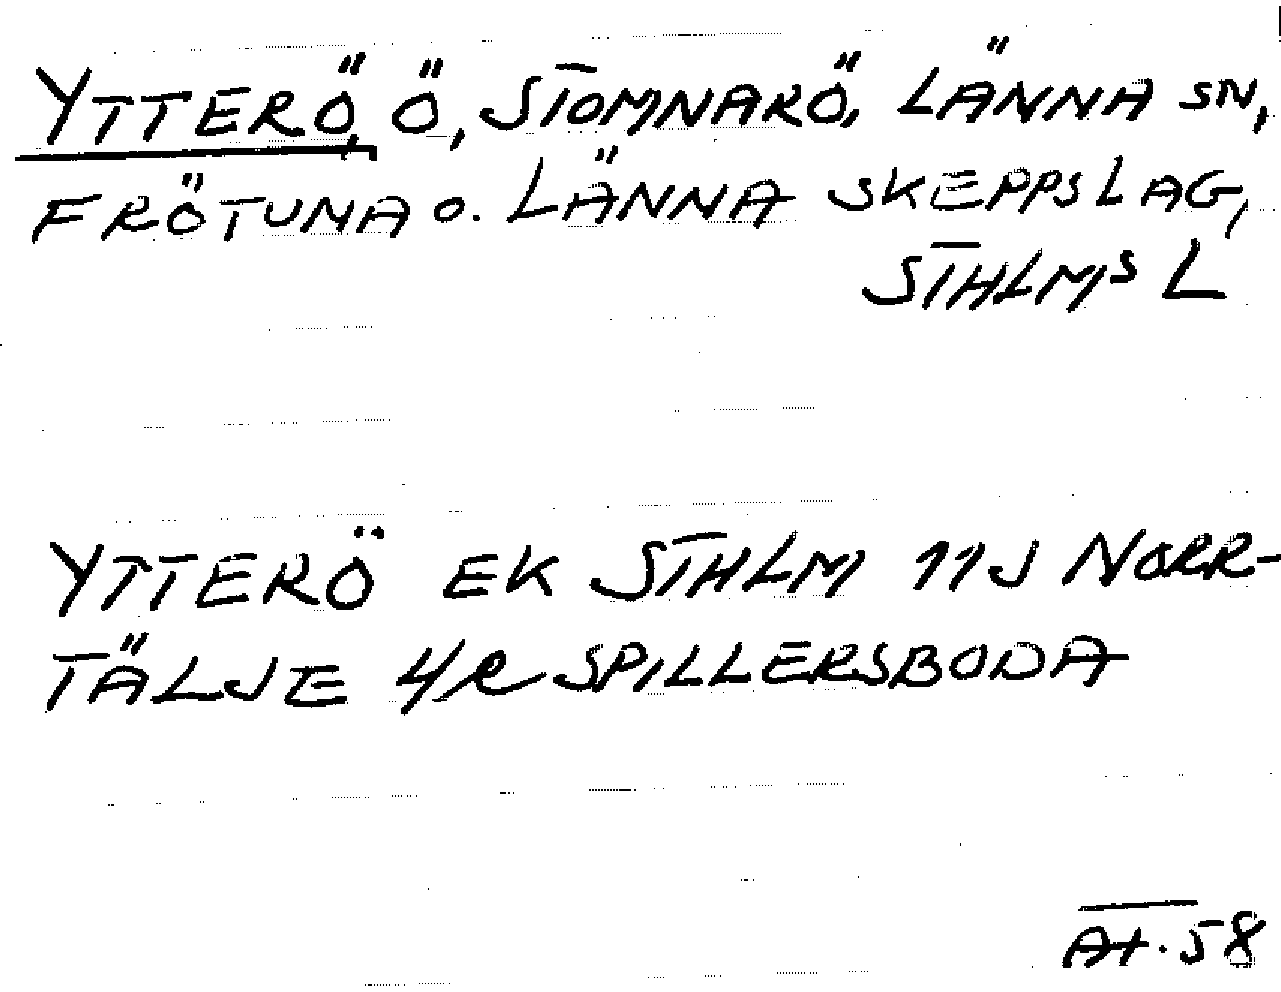 YTTERÖ, Ö, STOMNARÖ, LÄNNA SN,
FRÖTUNA O. LÄNNA SKEPPSLAG,
STHLMS L
YTTERÖ EK STHLM 11J NORR-
TÄLJE 4/e SPILLERSBODA
At. 58